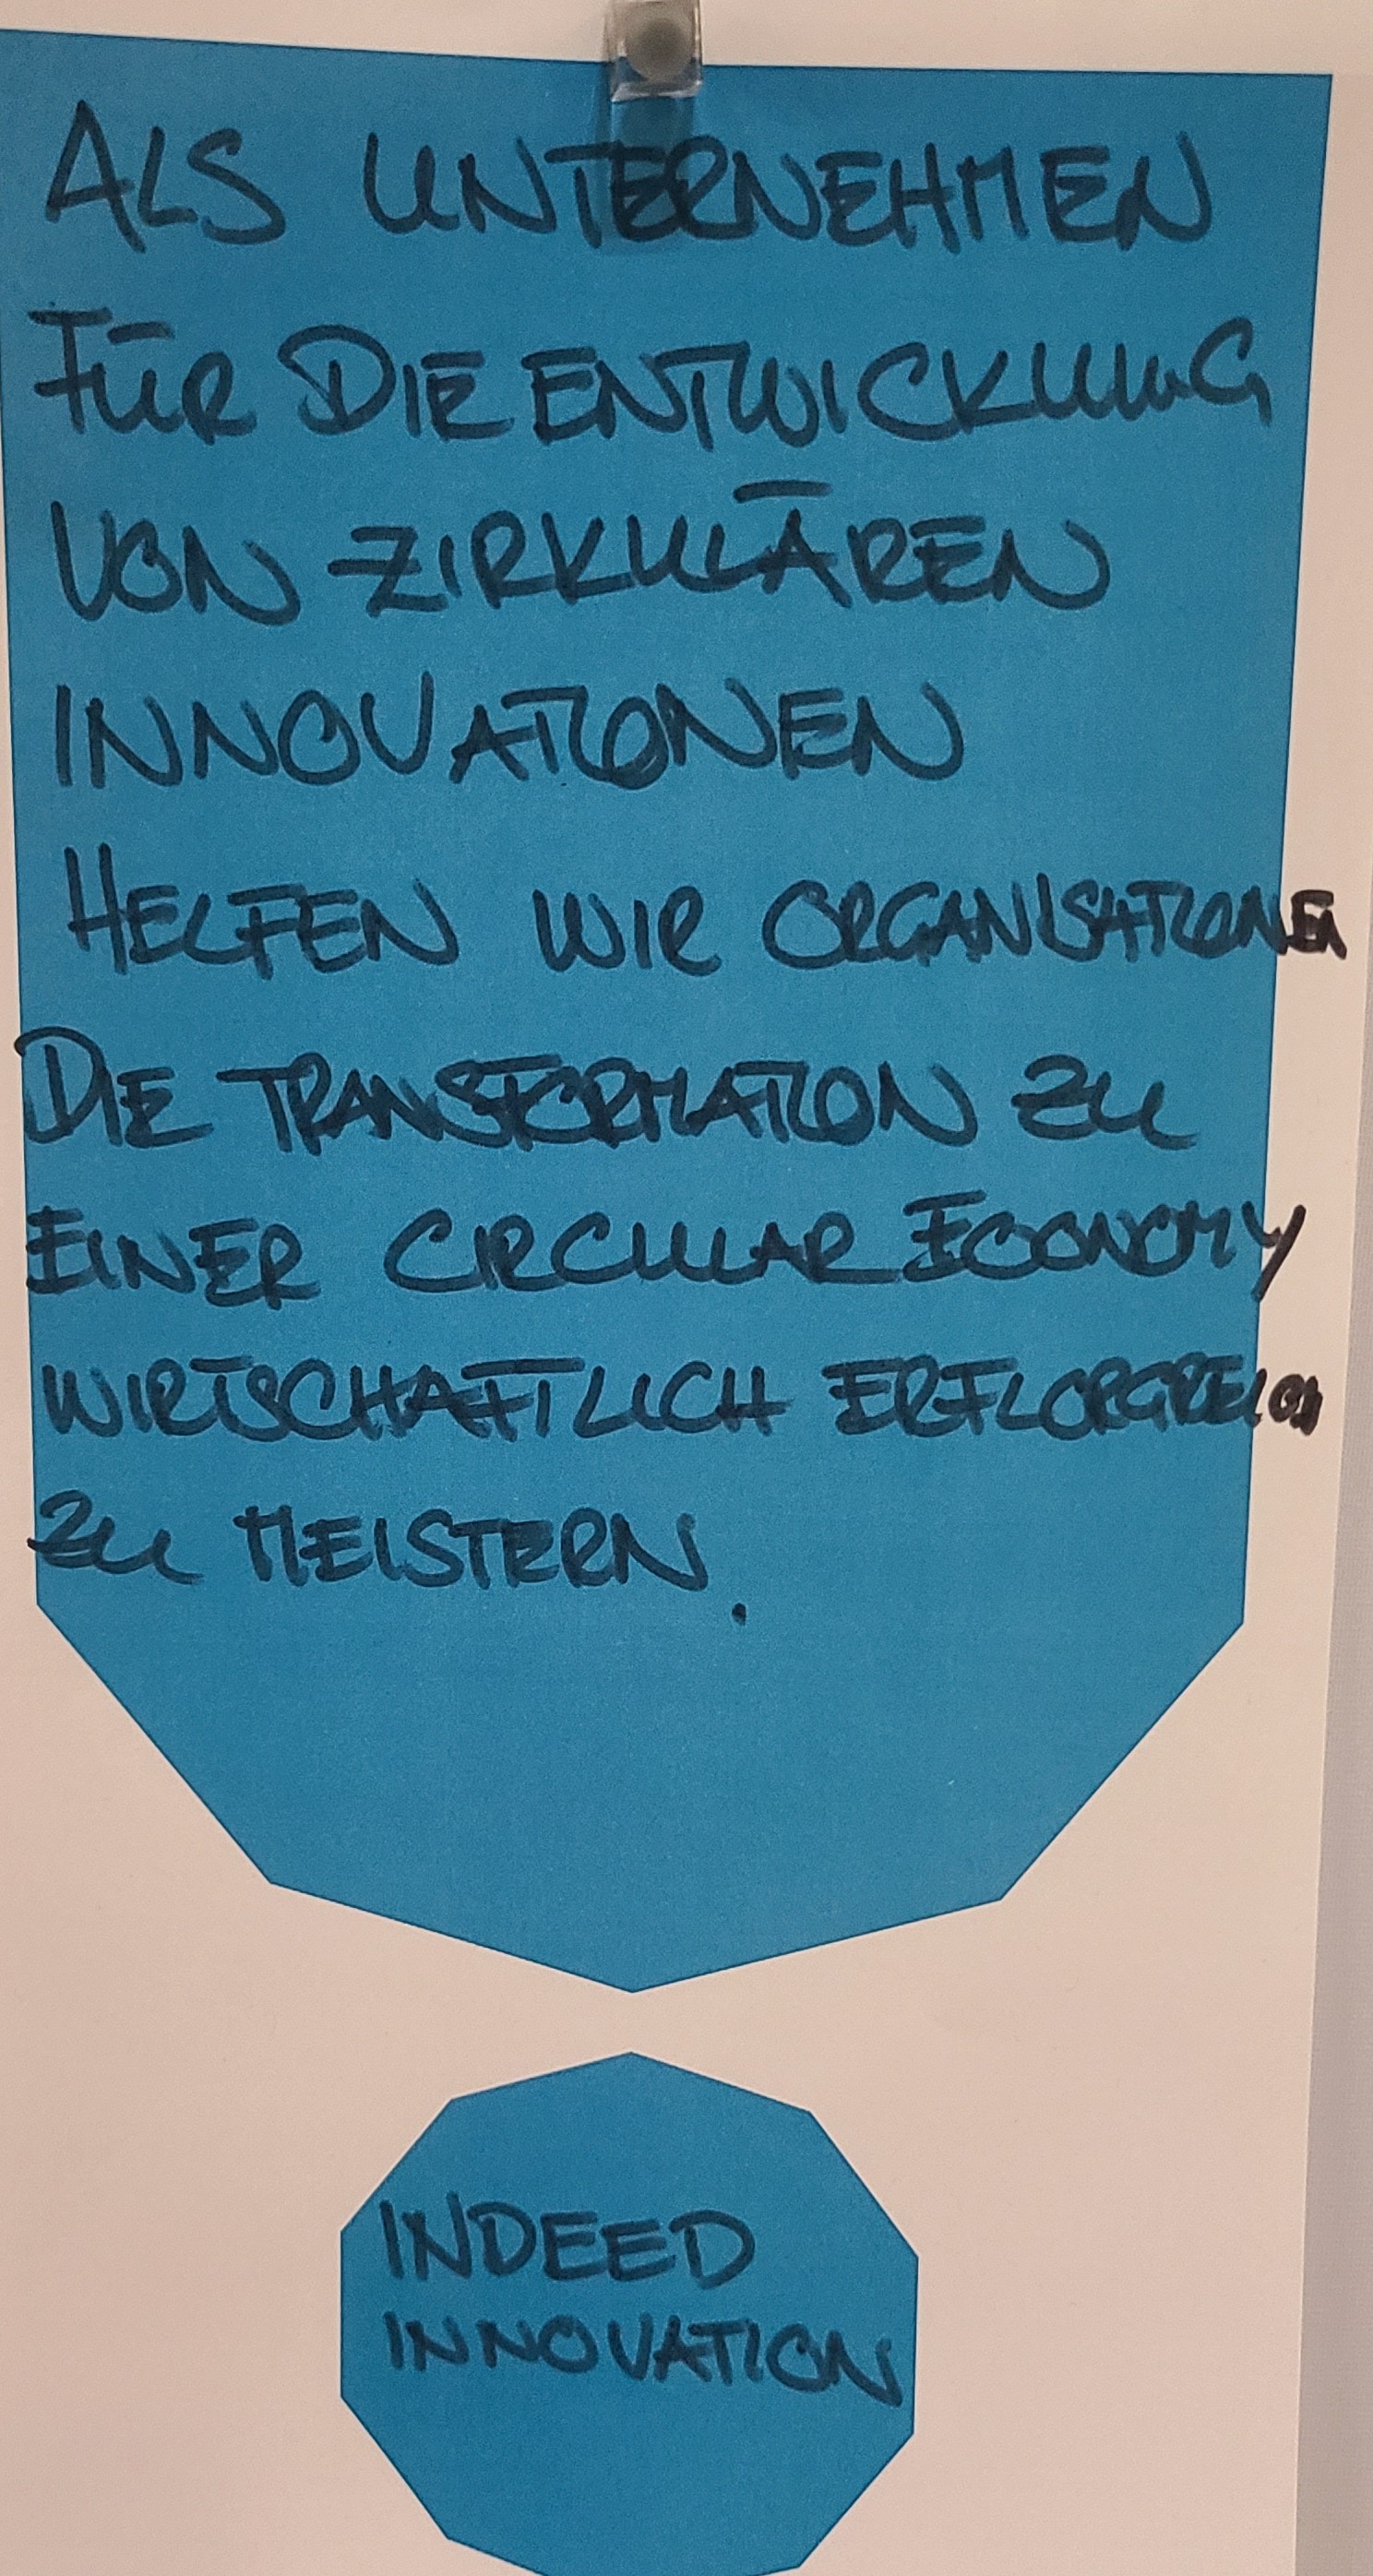 ALS UNTERNEHMEN
FÜR DIE ENTWICKLUNG
VON ZIRKULÄREN
INNOVATIONEN
HELFEN WIR ORGANISATIONEN
DIE TRANSFORMATION ZU
EINER CIRCULAR ECONOMY
WIRTSCHAFTLICH ERFLORGREICH
ZU MEISTERN.
INDEED
INNOVATION